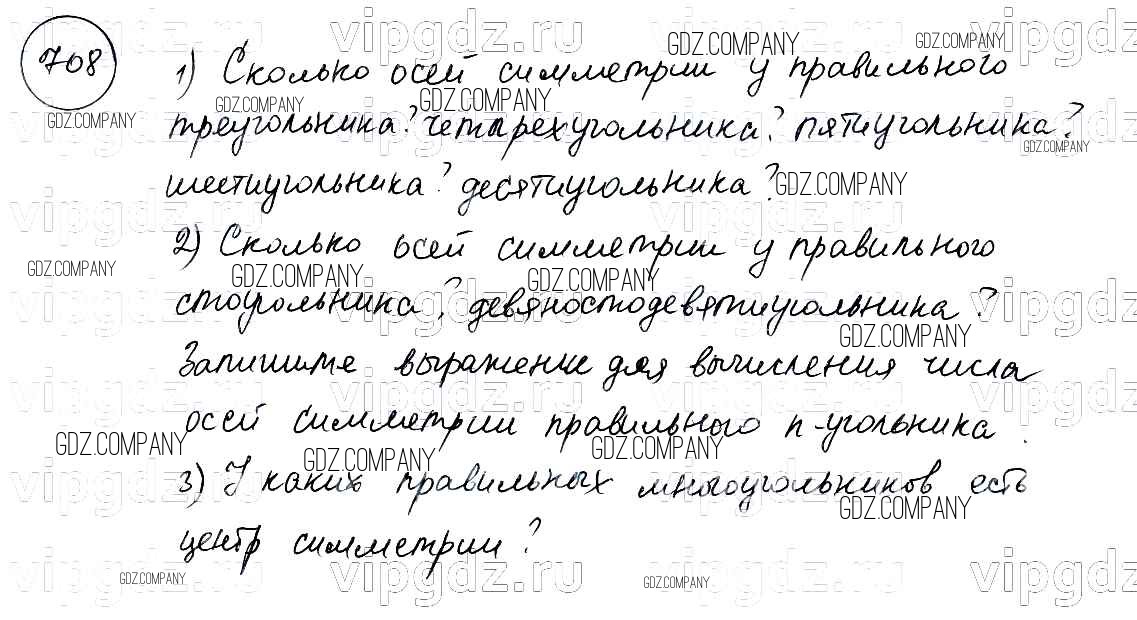 708
1) Сколько осей симметрии у правильного
треугольника? четырехугольника? пятиугольника?
шестиугольника? десятиугольника?
2) Сколько осей симметрии у правильного
стоугольника? девяностодевятиугольника?
Запишите выражение для вычисления числа
осей симметрии правильного n-угольника.
3) У каких правильных многоугольников есть
центр симметрии?
GDZ.COMPANY
vipgdz.ru